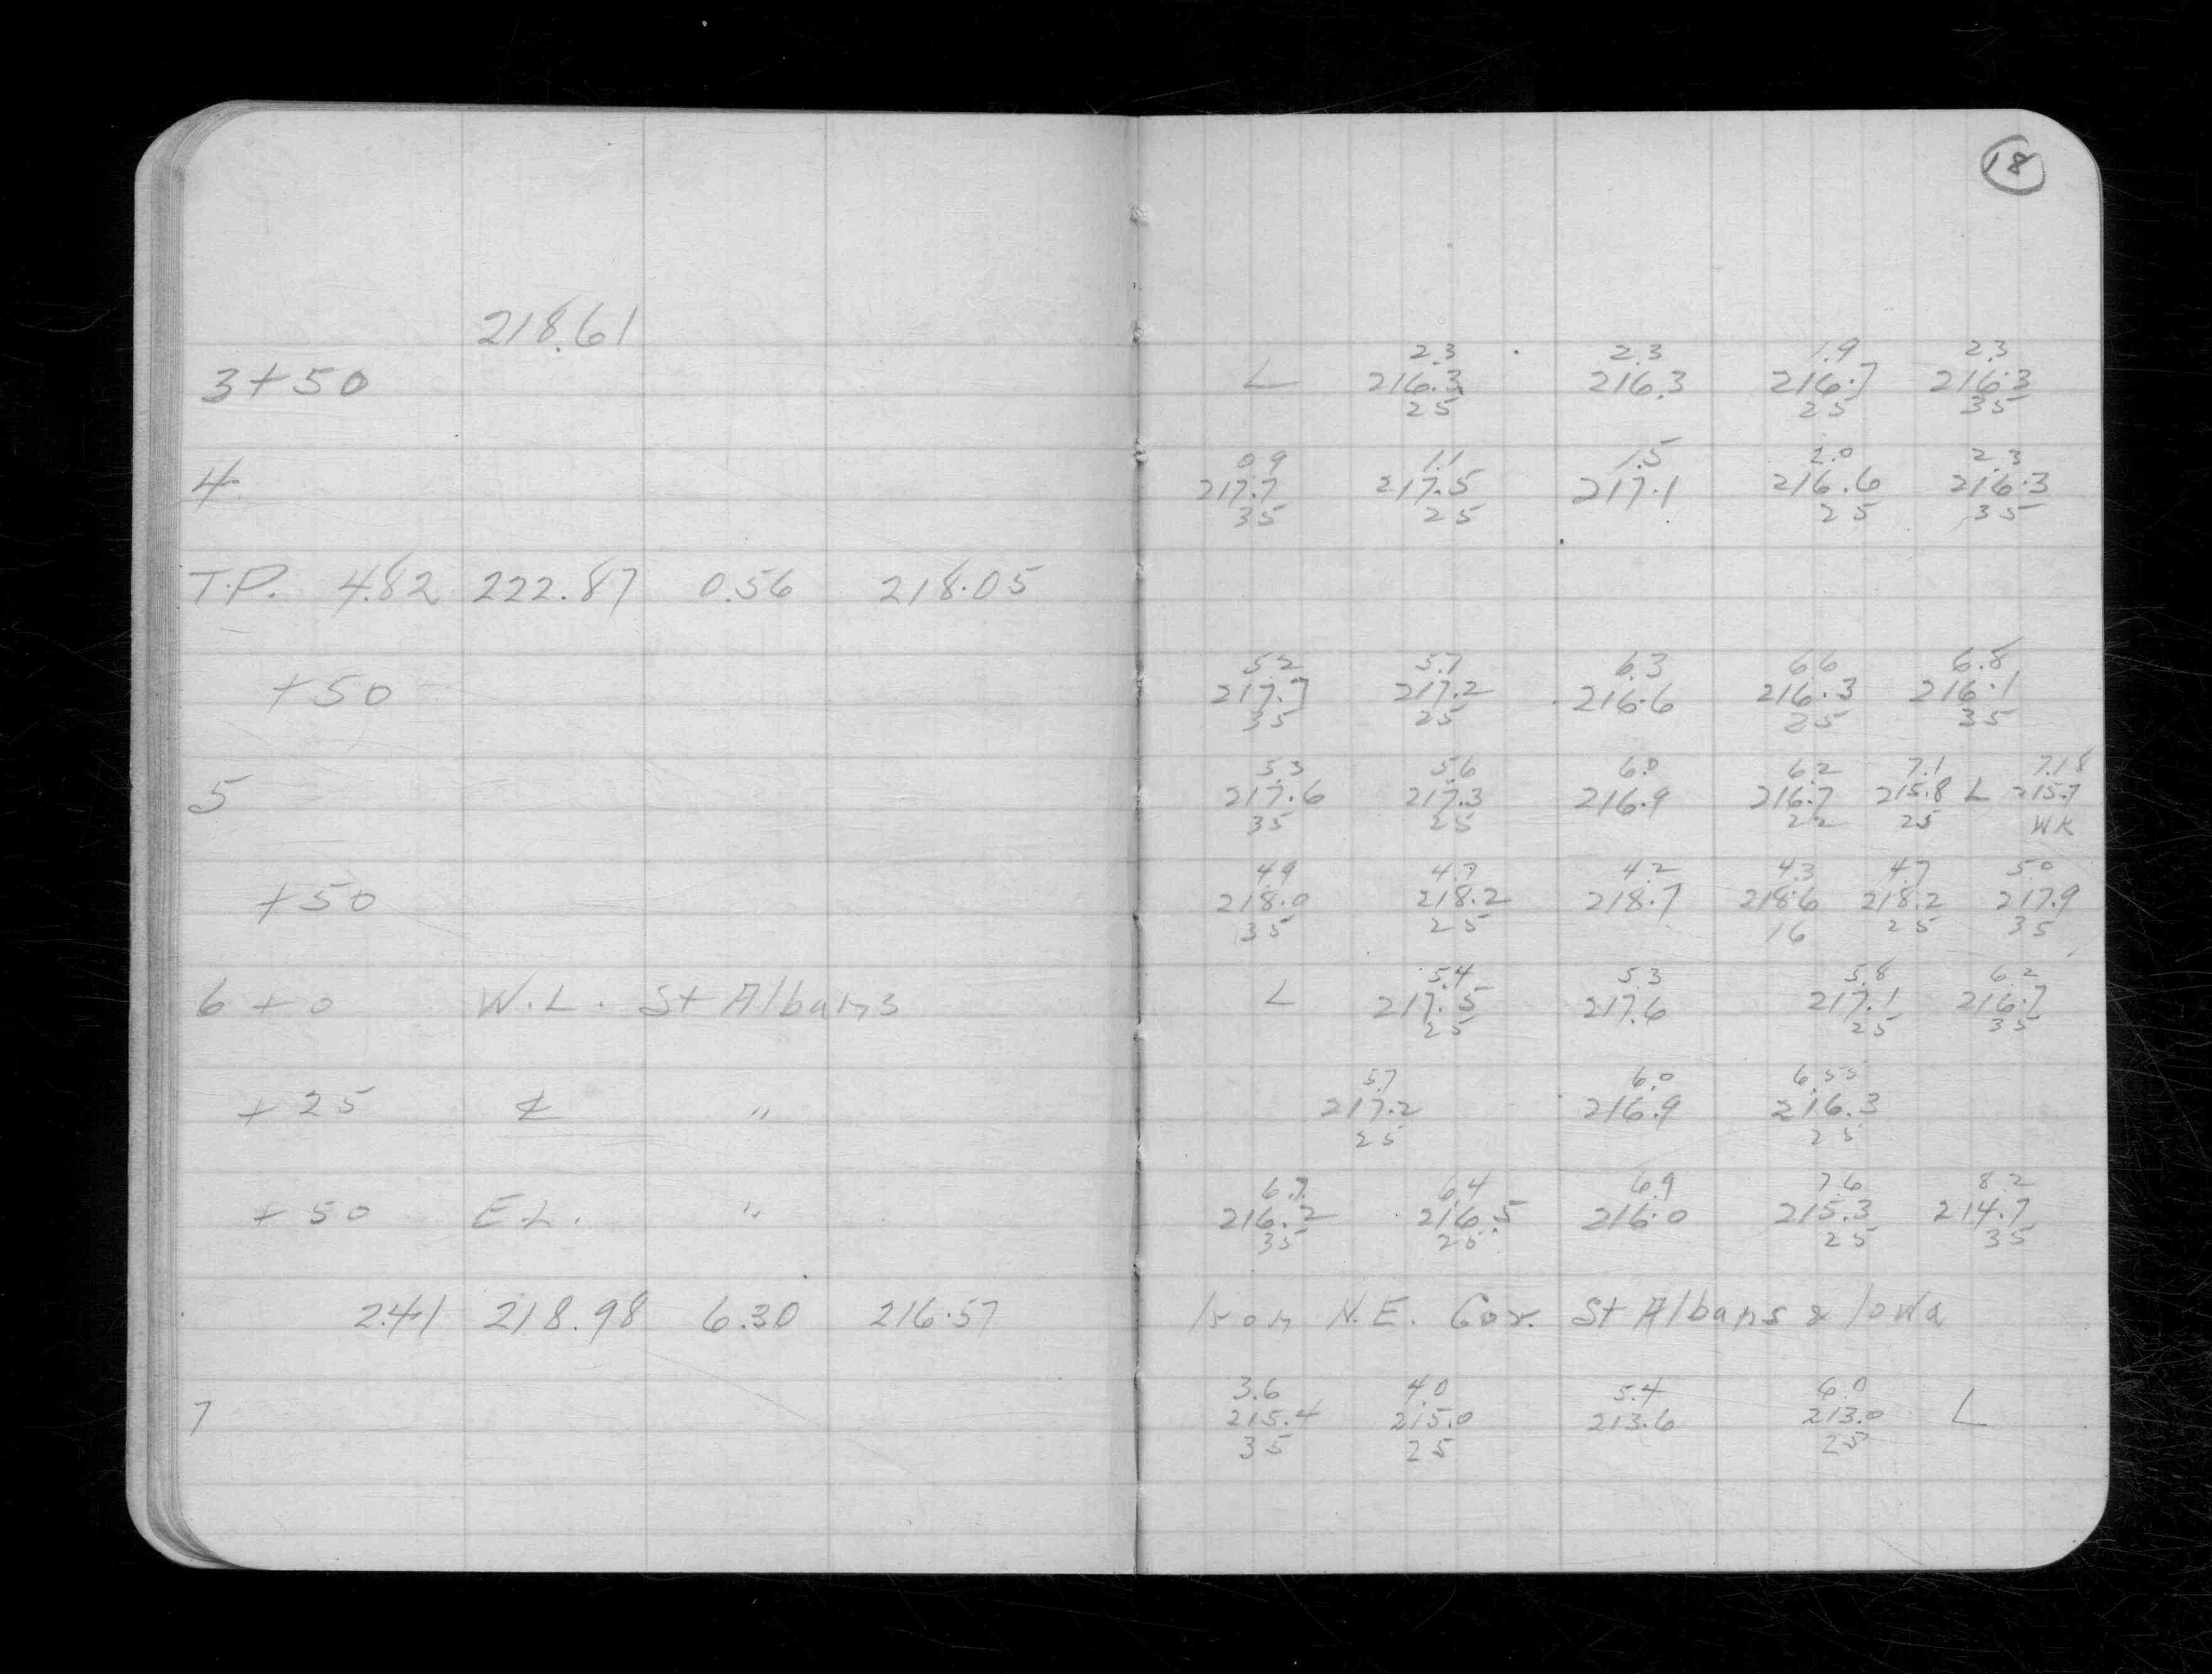 18
218.61
2.3 2.3 1.9 2.3
3+50 L 216.3 216.3 216.7 216.3
25 25 35
0.9 1.1 1.5 2.0 2.3
4 217.7 217.5 217.1 216.6 216.3
35 25 25 35
T.P. 4.82 222.87 0.56 218.05
5.2 5.7 6.3 6.6 6.8
+50 217.7 217.2 216.6 216.3 216.1
35 25 25 35
5.3 5.6 6.0 6.2 7.1 7.18
5 217.6 217.3 216.9 216.7 215.8 L 215.7
35 25 22 25 WK
4.9 4.7 4.2 4.3 4.7 5.0
+50 218.0 218.2 218.7 218.6 218.2 217.9
35 25 16 25 35
5.4 5.3 5.8 6.2
6+0 W.L. St Albans L 217.5 217.6 217.1 216.7
25 25 35
5.7 6.0 6.55
+25 ȼ " 217.2 216.9 216.3
25 25
6.7 6.4 6.9 7.6 8.2
+50 E.L. " 216.2 216.5 216.0 215.3 214.7
35 25 25 35
2.41 218.98 6.30 216.57 Iron N.E. Cor. St Albans & Iowa
3.6 4.0 5.4 6.0
7 215.4 215.0 213.6 213.0 L
35 25 25